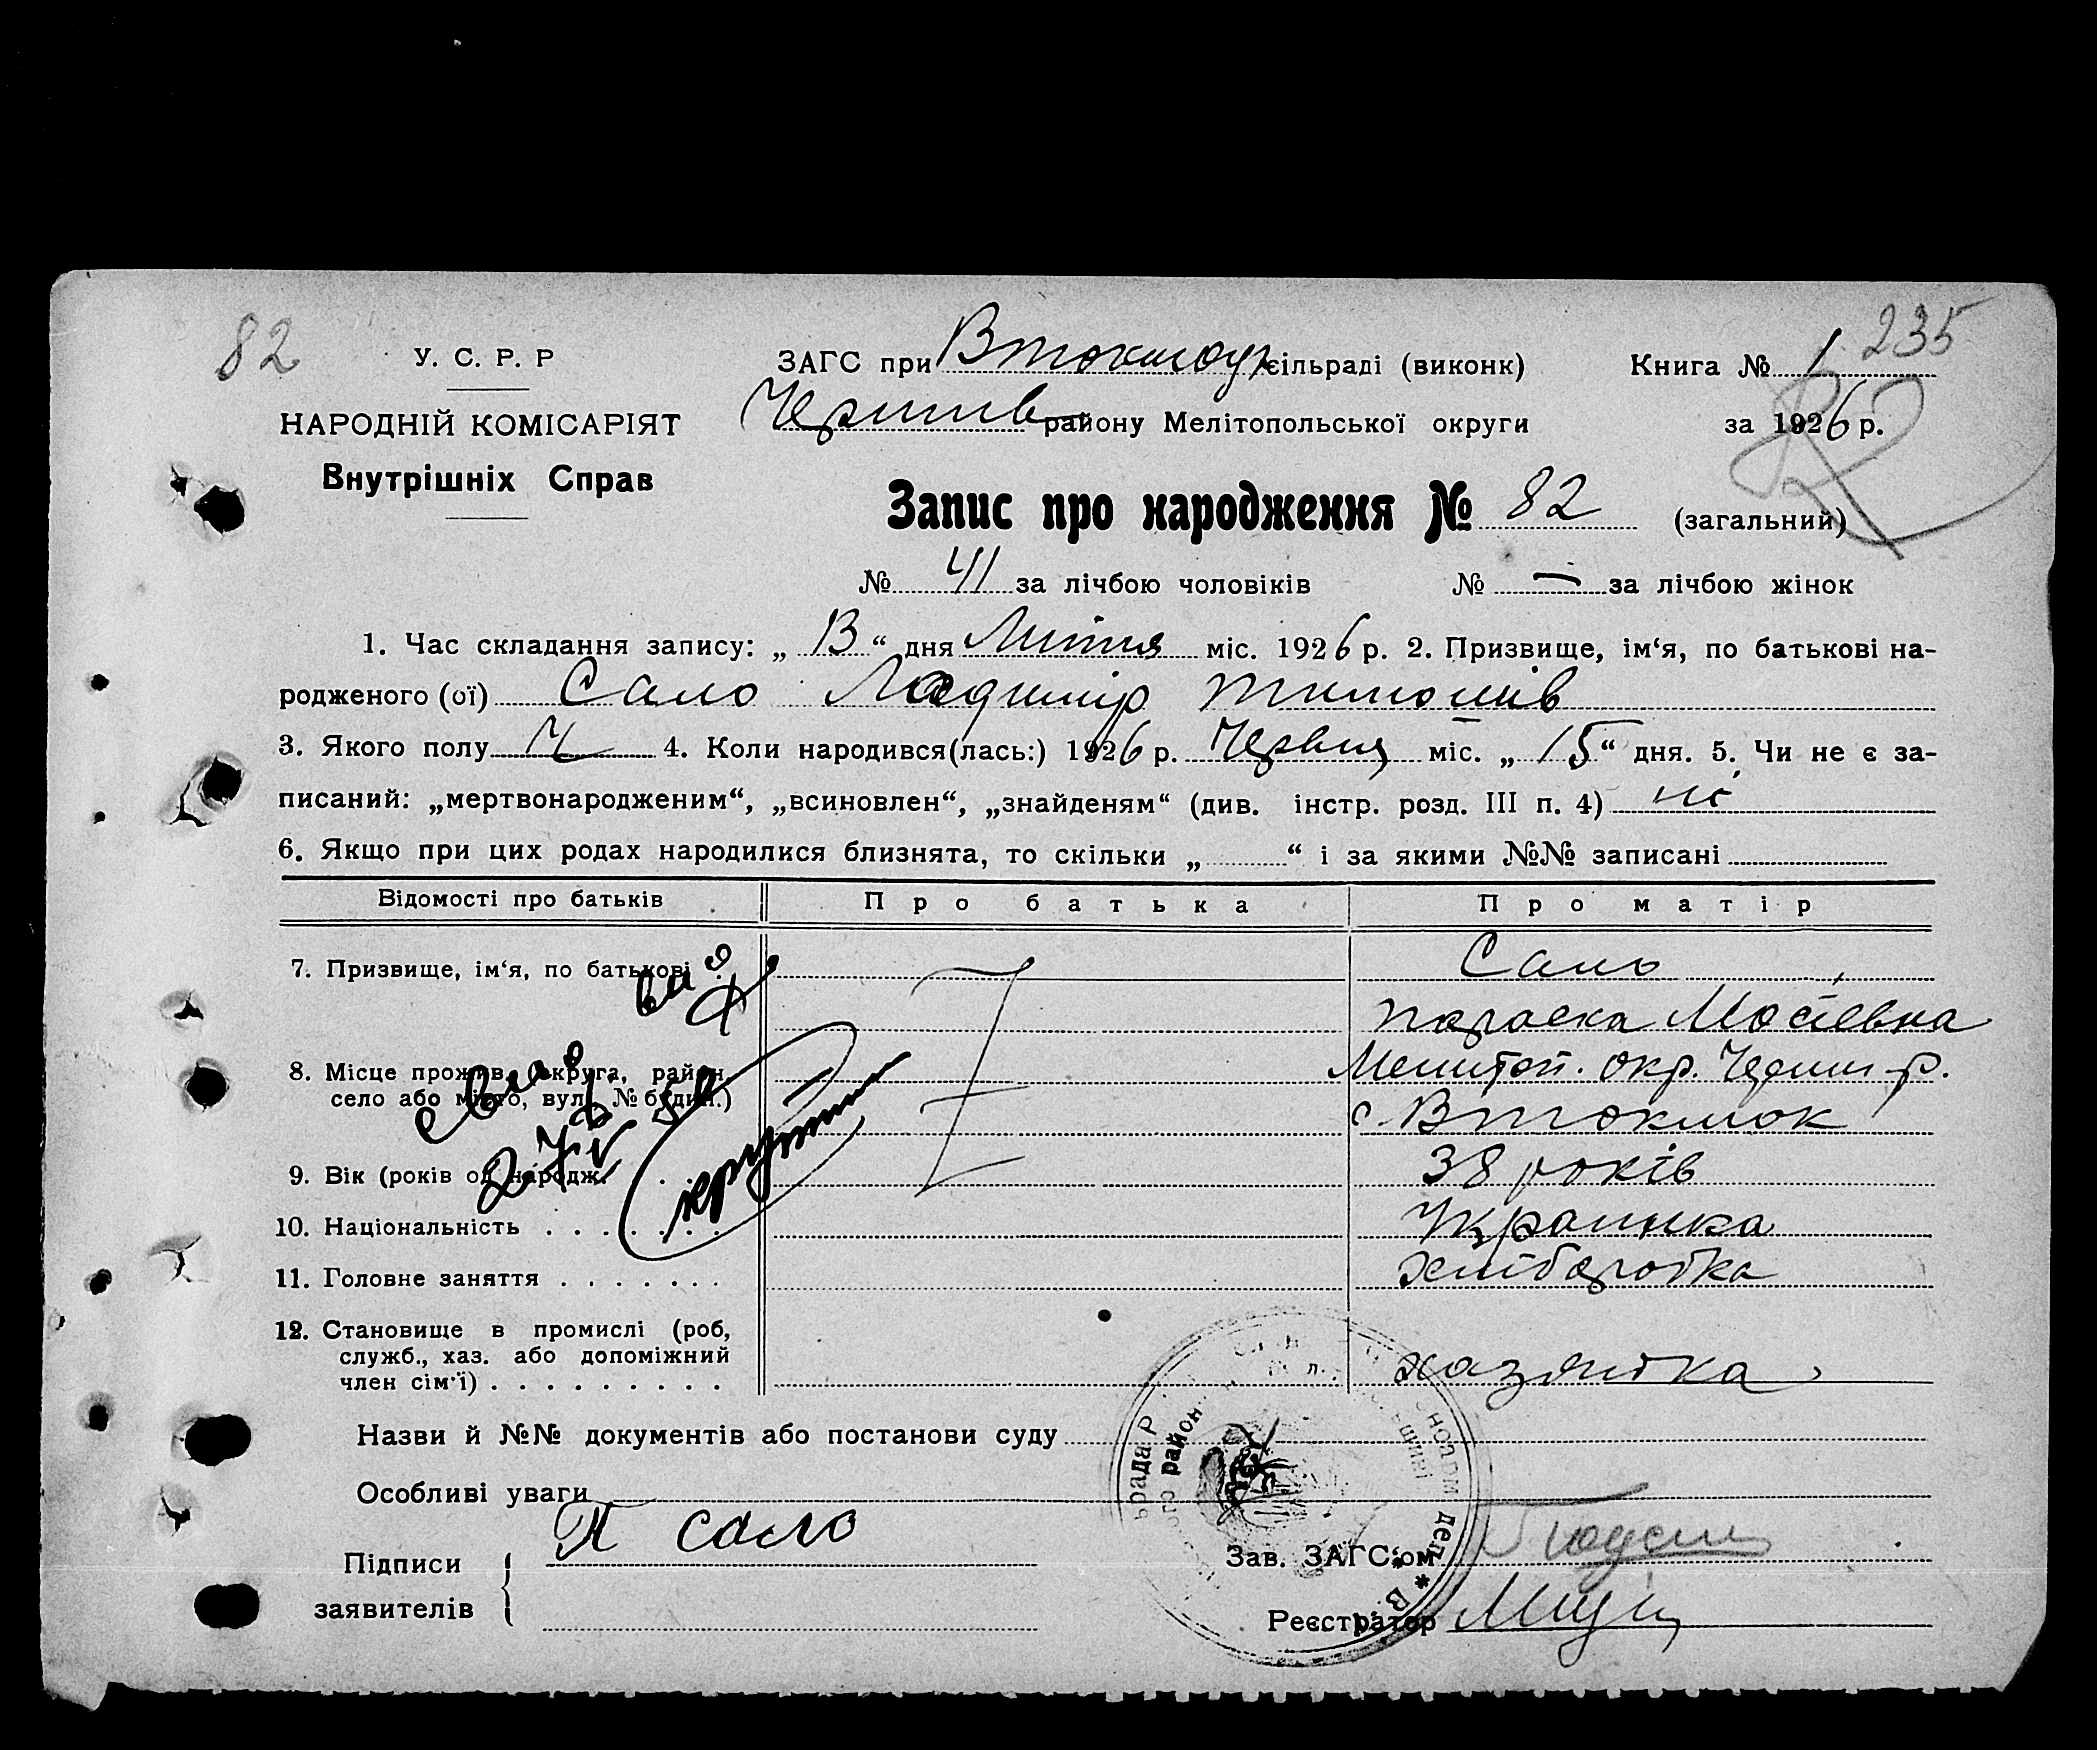 82
235
У. С. Р. Р
ЗАГС при Втокмоц. сільраді (виконк)
Книга № 1
НАРОДНІЙ КОМІСАРІЯТ
району Мелітопольської округи
за 1926 р.
Внутрішніх Справ
Запис про народження № 82 (загальний)
82
№ 41 за лічбою чоловіків № — за лічбою жінок
1. Час складання запису: „ 13 “ дня Липня міс. 1926 р. 2. Призвище, ім‘я, по батькові на-
родженого (ої) Сало Ладимір Тимошів
3. Якого полу Ч 4. Коли народився(лась:) 1926 р. Червця міс. „ 15 “ дня. 5. Чи не є за-
писаний: „мертвонародженим“, „всиновлен“, „знайденям“ (див. інстр. розд. III п. 4) ні
6. Якщо при цих родах народилися близнята, то скільки „ “ і за якими №№ записані
Відомості про батьків Про батька Про матір
7. Призвище, ім‘я, по батькові Сало
Параска Мосієвна
8. Місце прожив. (округа, район, Мелітоп. окр. Черниг р.
село або місто, вул. № будин.) с. Втокмок
9. Вік (років од народж. 38 років
10. Національність . . . . . . . Украинка
11. Головне заняття . . . . . . . хліборобка
12. Становище в промислі (роб,
служб., хаз. або допоміжний
член сім‘ї) . . . . . . . . . хазяйка
Назви й №№ документів або постанови суду
Особливі уваги
П сало
Підписи
заявителів
Зав. ЗАГС‘ом
Реєстратор